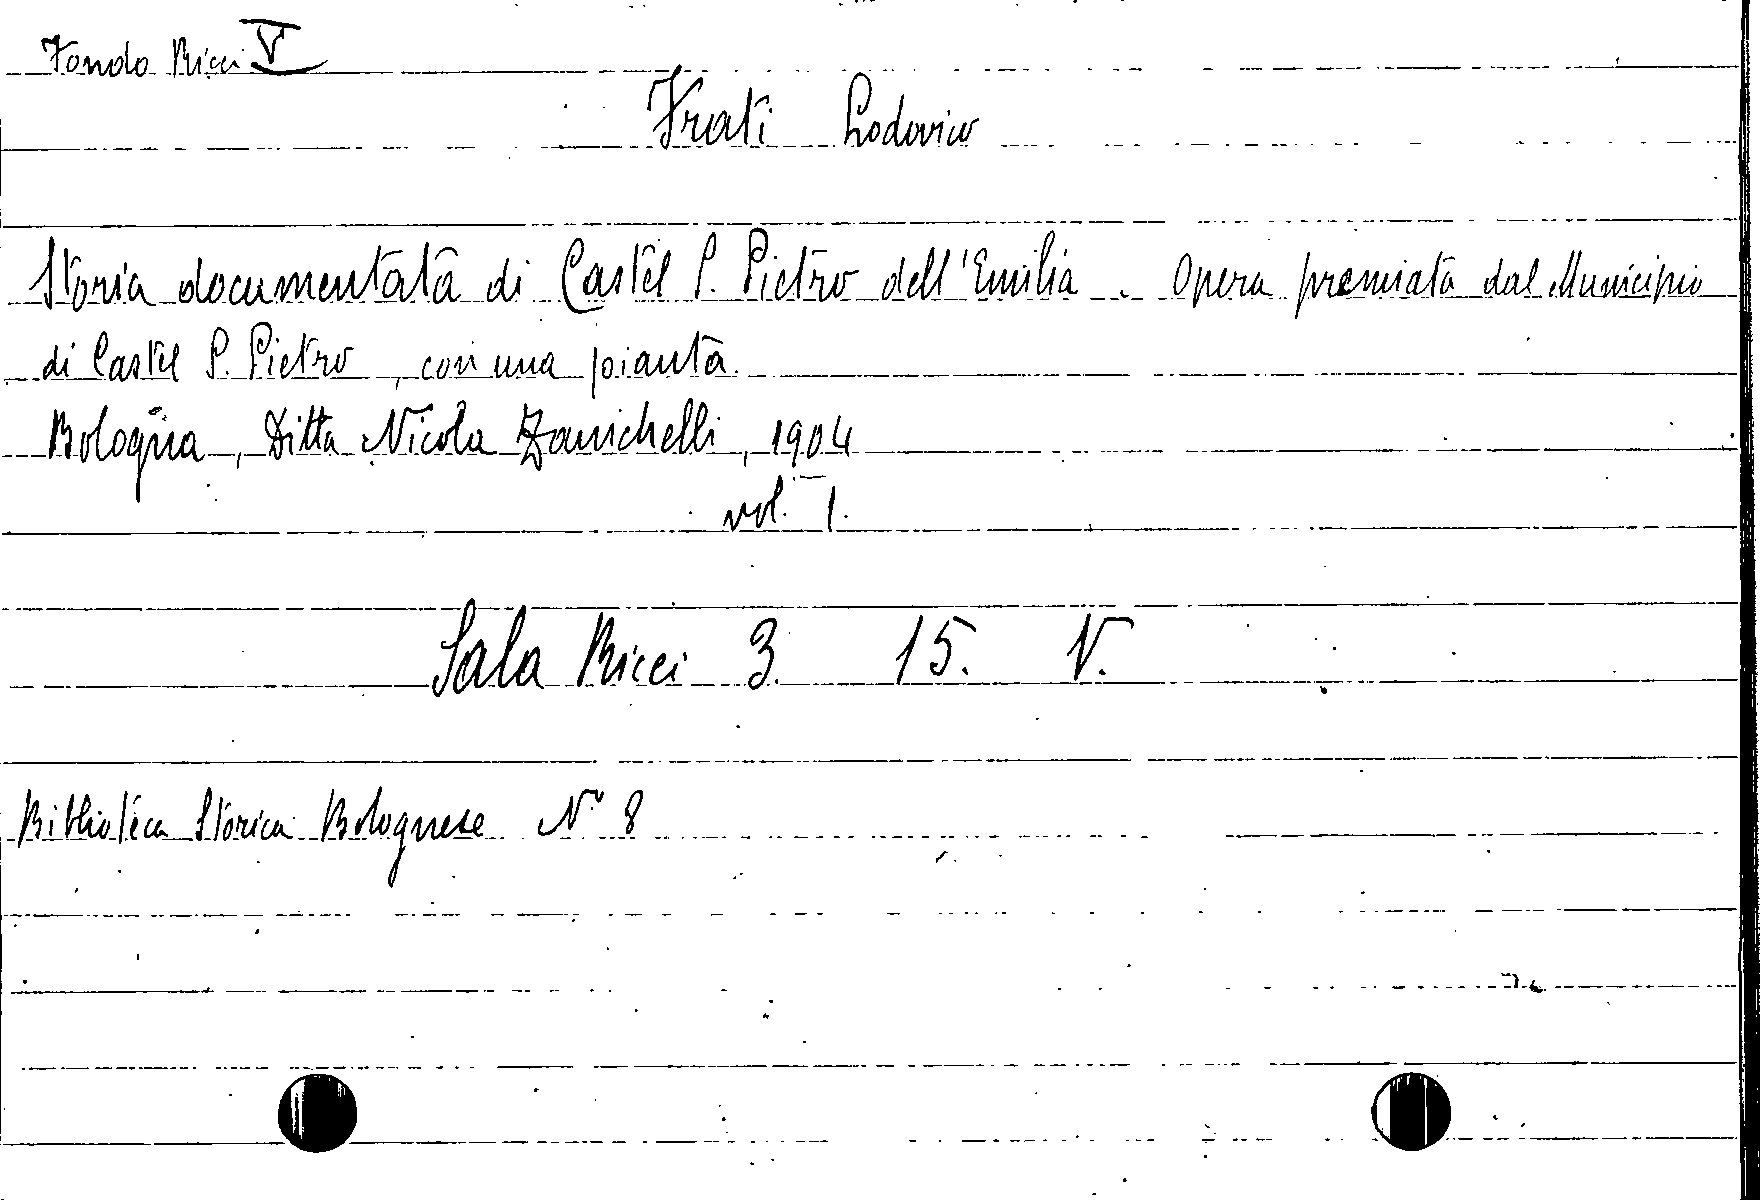 Fondo Ricci V
Frati Lodovico
Storia documentata di Castel S. Pietro dell'Emilia. Opera premiata dal Municipio
di Castel S. Pietro, con una pianta.
Bologna, Ditta Nicola Zanichelli, 1904
vol. 1.
Sala Ricci 3. 15. V.
Biblioteca Storica Bolognese N° 8